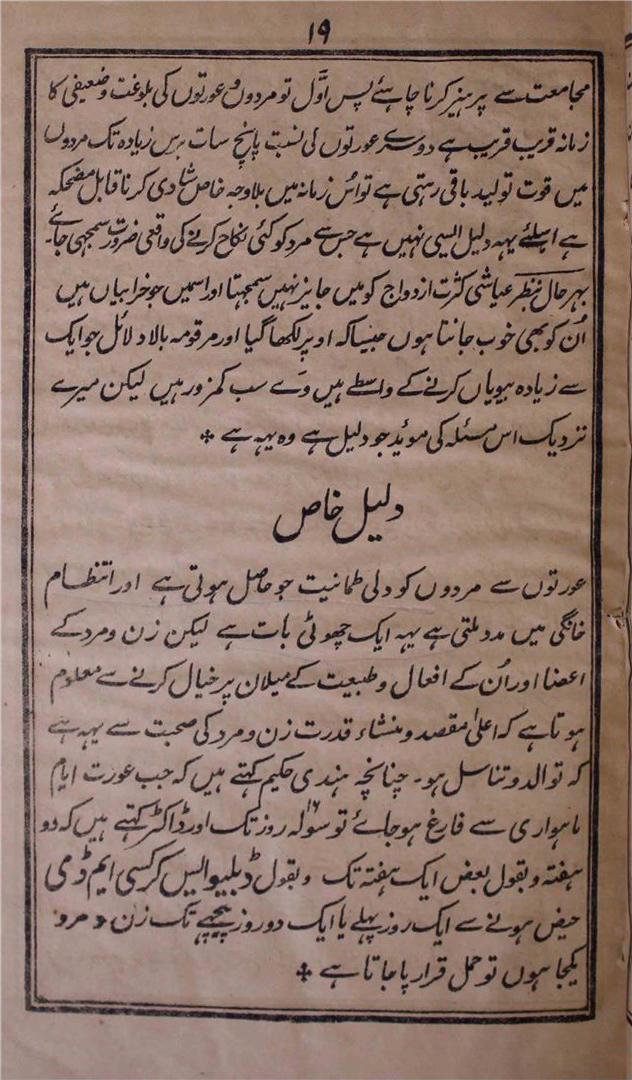 ۱۹
مجامعت سے پرہیز کرنا چاہئے پس اوّل تو مردوں و عورتوں کی بلوغت و ضعیفی کا
زمانہ قریب قریب ہے دوسرے عورتوں کی نسبت پانچ سات برس زیادہ تک مردوں
میں قوت تولید باقی رہتی ہے تو اُس زمانہ میں بلاوجہ خاص شادی کرنا قابل مضحکہ
ہے اسلئے یہہ دلیل ایسی نہیں ہے جس سے مرد کو کئی نکاح کرنے کی واقعی ضرورت سمجہی جائے۔
بہرحال بنظر عیاشی کثرت ازدواج کو میں جایز نہیں سمجہتا اور اسمیں جو خرابیاں ہیں
اُن کو بھی خوب جانتا ہوں جیسا کہ اوپر لکھا گیا اور مرقومہ بالا دلائل جو ایک
سے زیادہ بیویاں کرنے کے واسطے ہیں وے سب کمزور ہیں لیکن میرے
نزدیک اس مسئلہ کی موئید جو دلیل ہے وہ یہہ ہے ⁜
دلیل خاص
عورتوں سے مردوں کو دلی طمانیت جو حاصل ہوتی ہے اور انتظام
خانگی میں مدد ملتی ہے یہہ ایک چھوٹی بات ہے لیکن زن و مرد کے
اعضا اور اُن کے افعال و طبیعت کے میلان پر خیال کرنے سے معلوم
ہوتا ہے کہ اعلیٰ مقصد و منشاء قدرت زن و مرد کی صحبت سے یہہ ہے
کہ توالد و تناسل ہو۔ چنانچہ ہندی حکیم کہتے ہیں کہ جب عورت ایام
ماہواری سے فارغ ہو جائے تو سولہ ۱۶ روز تک اور ڈاکٹر کہتے ہیں کہ دو
ہفتہ و بقول بعض ایک ہفتہ تک و بقول ڈبلیو ایس کرکسی ایم ڈی
حیض ہونے سے ایک روز پہلے یا ایک دو روز پیچھے تک زن و مرد
یکجا ہوں تو حمل قرار پا جاتا ہے ⁜